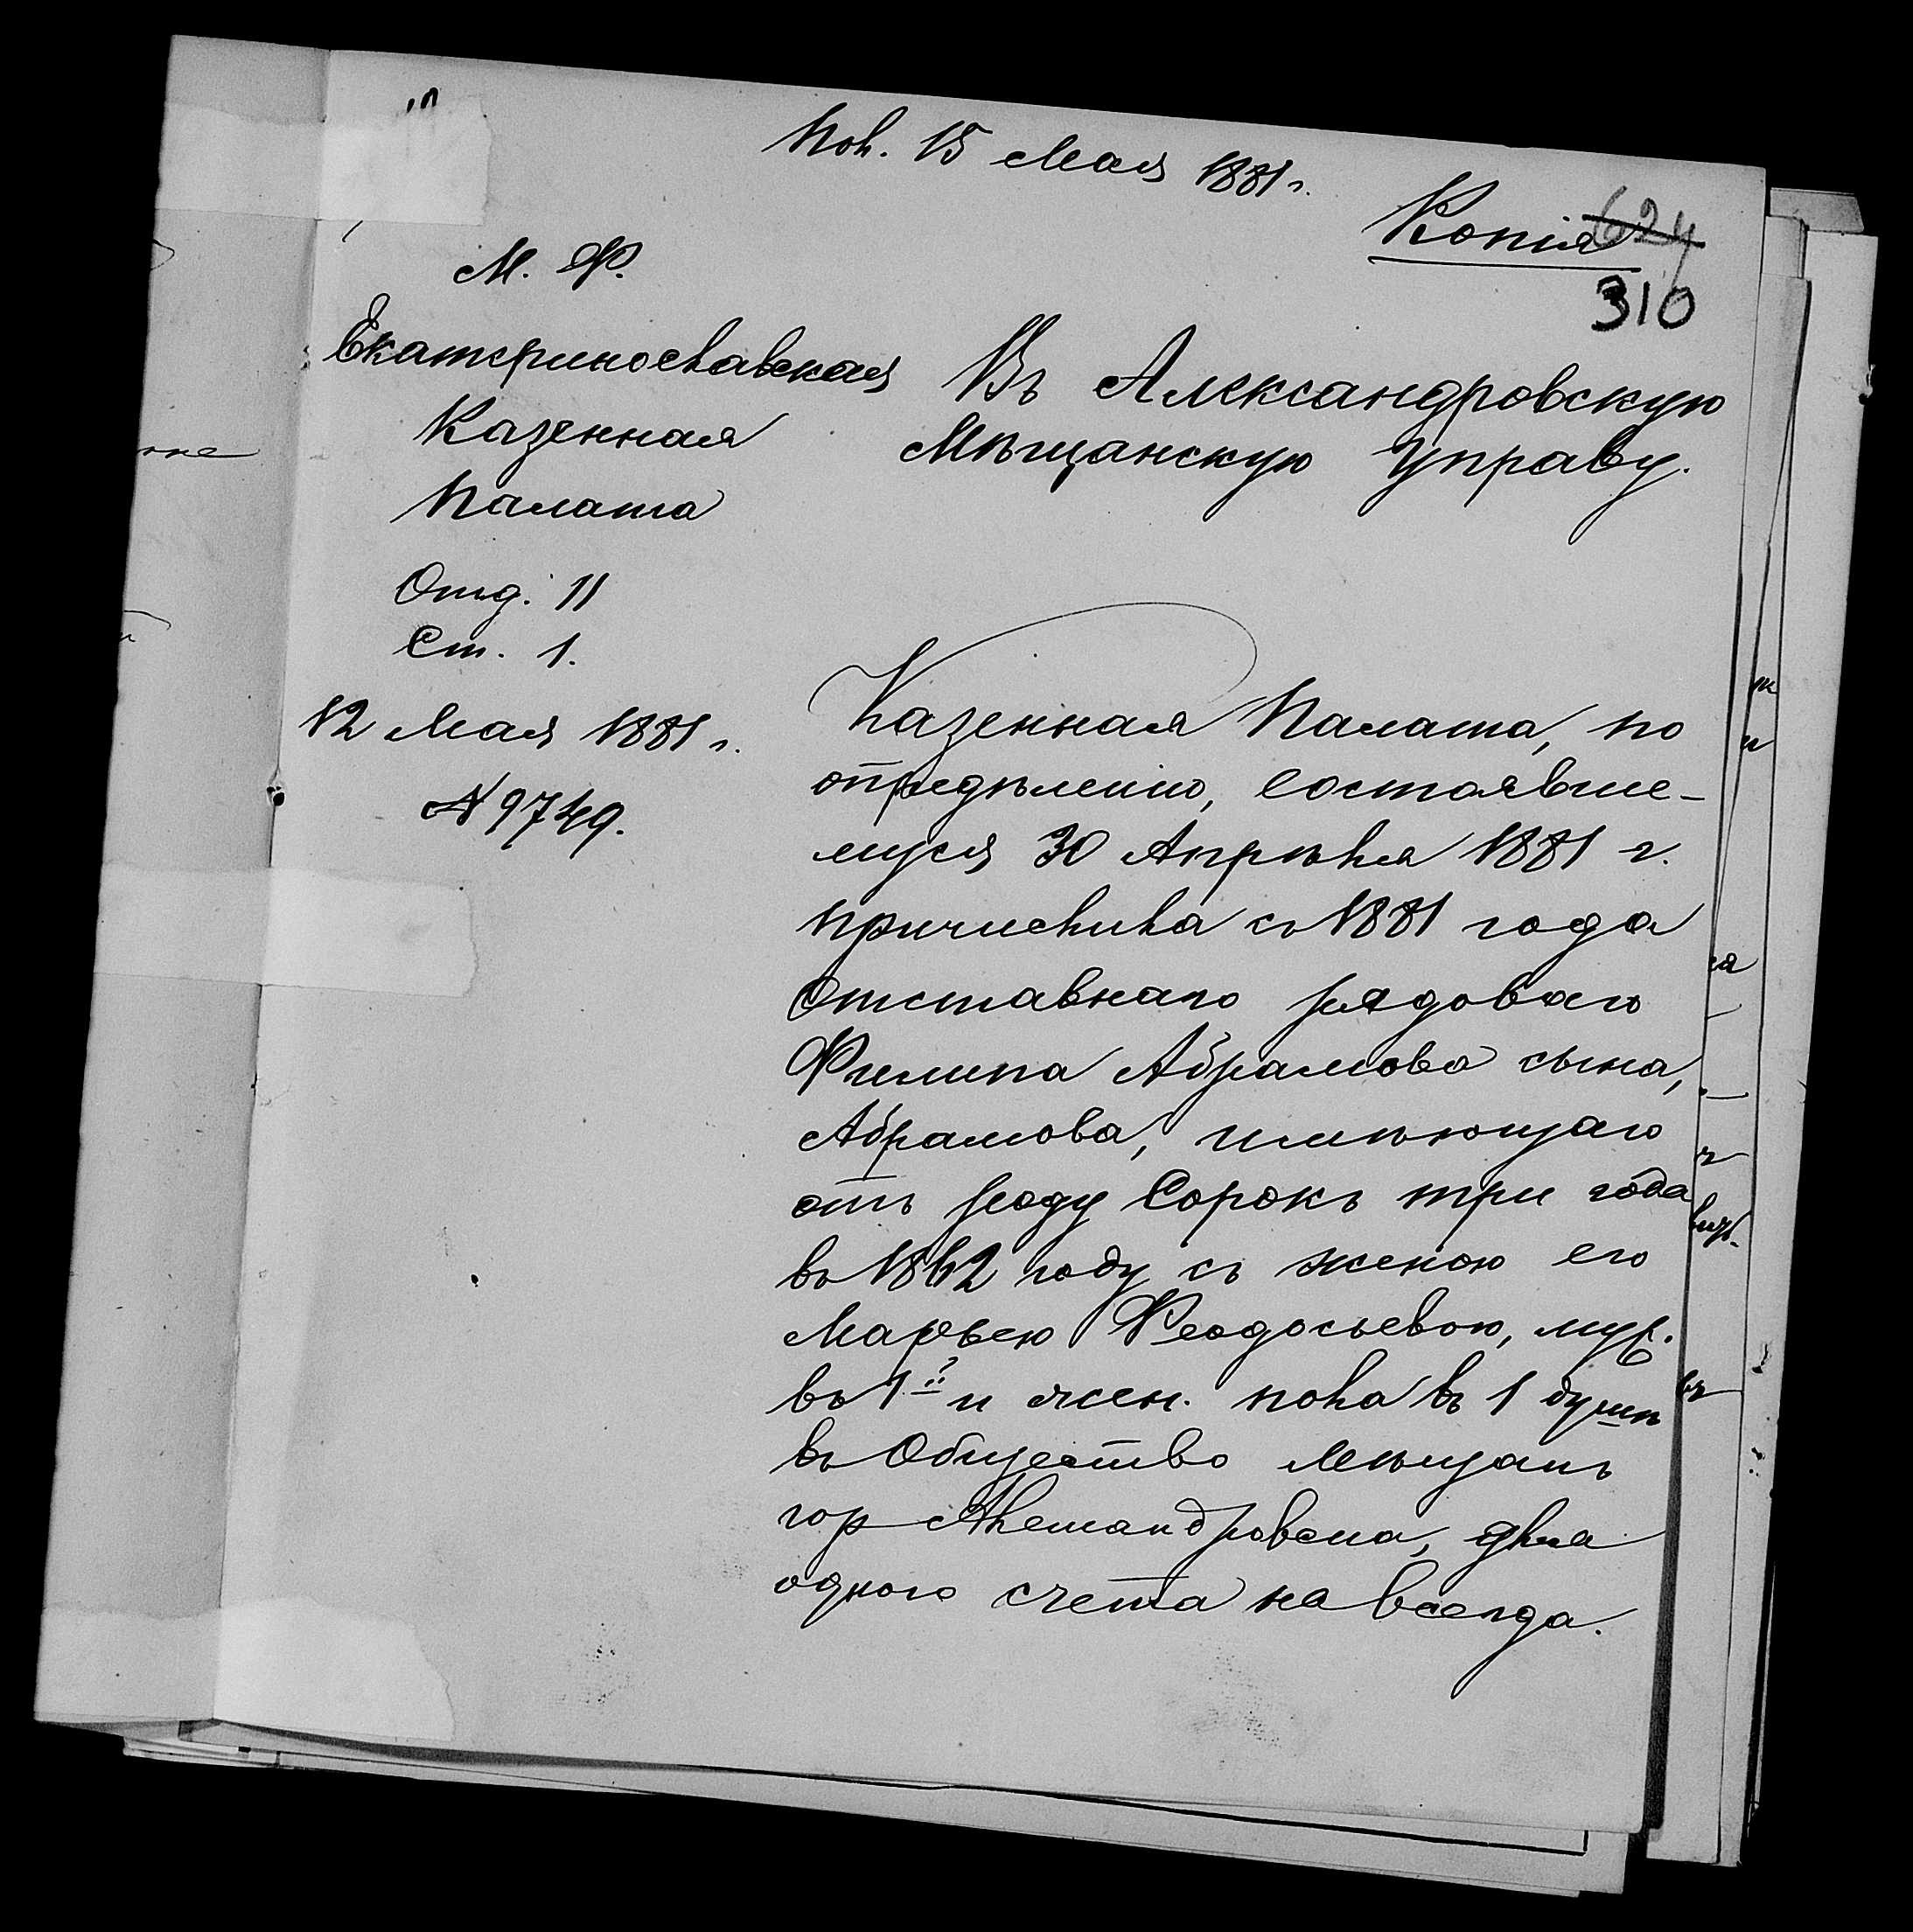 Пол. 15 Мая 1881 г.
Копія
624
310
М. Ф.
Екатеринославская
Казенная
Палата
Отд. II
Ст. 1.
12 Мая 1881 г.
№ 9749.
Въ Александровскую
Мѣщанскую Управу.
Казенная Палата, по
опредѣленію, состоявше-
муся 30 Апрѣля 1881 г.
причислила съ 1881 года
Отставнаго рядоваго
Филипа Абрамова сына,
Абрамова, имѣющаго
отъ роду Сорокъ три года
въ 1862 году съ женою его
Марьею Феодосьевою, муж.
въ 1й и жен. пола въ 1 душѣ
въ Общество мѣщанъ
гор Александровска, для
одного счета на всегда.